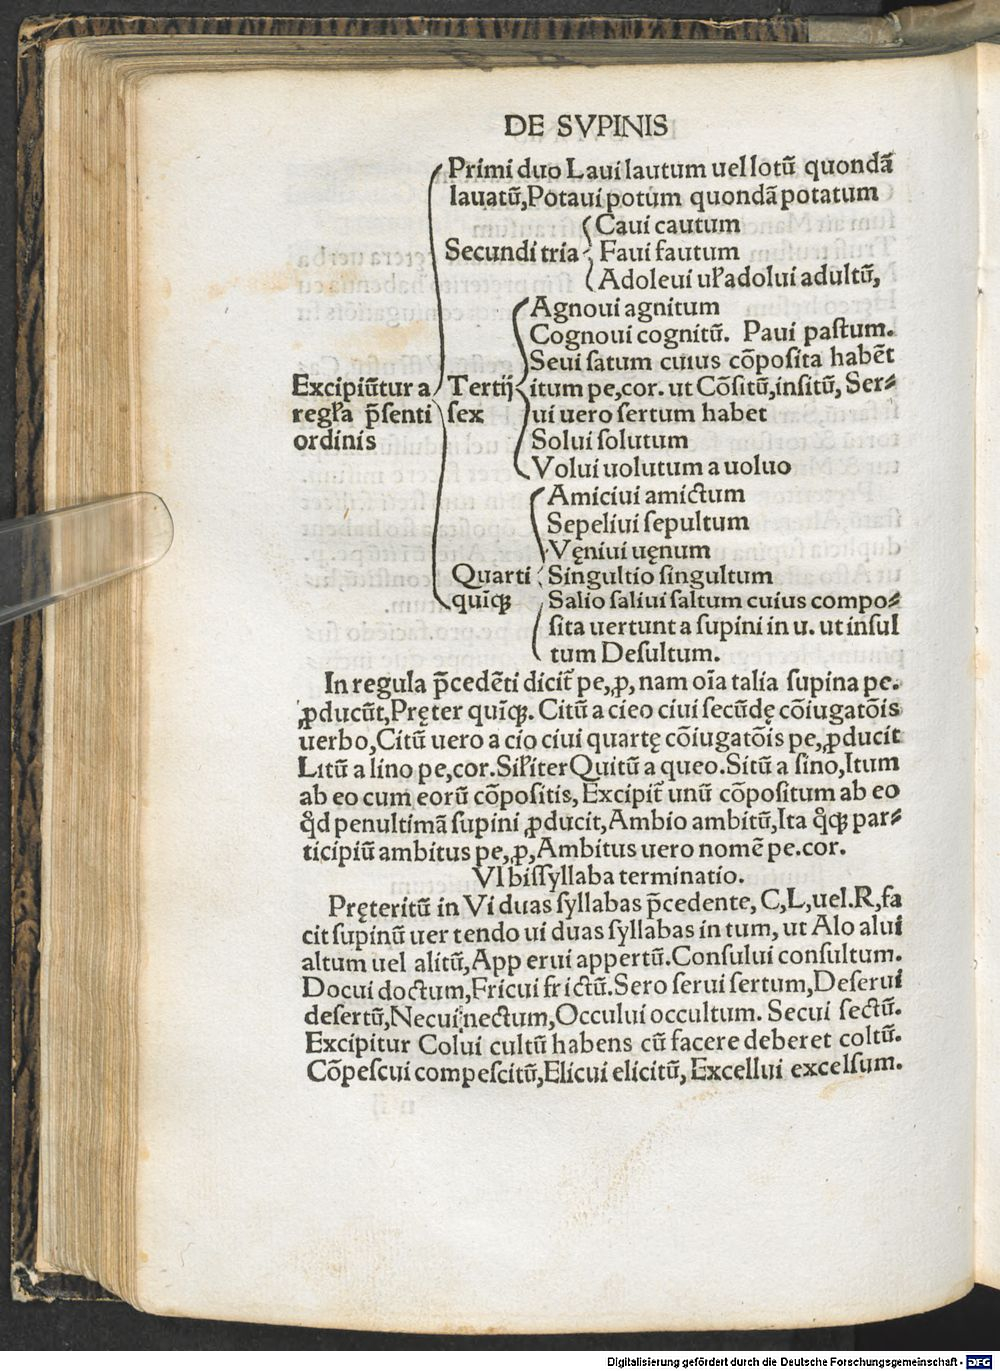 DE SVPINIS
Primi duo Laui lautum uel lotū quondā
lauatū,Potaui potum quondā potatum
Secundi tria
Caui cautum
Faui fautum
Adoleui uƚ adolui adultū,
Excipiūtur a
regƚa p̄senti
ordinis
Tertij
sex
Agnoui agnitum
Cognoui cognitū. Paui pastum.
Seui satum cuius cōposita habēt
itum pe,cor. ut Cōsitū,insitū, Ser⸗
ui uero sertum habet
Solui solutum
Volui uolutum a uoluo
Quarti
quīqꝫ
Amiciui amictum
Sepeliui sepultum
Vęniui uęnum
Singultio singultum
Salio saliui saltum cuius compo⸗
sita uertunt a supini in u. ut insul
tum Desultum.
In regula p̄cedēti dicit̄ pe,ꝓ, nam oīa talia supina pe.
ꝓducūt,Pręter quīqꝫ. Citū a cieo ciui secūdę cōiugatōis
uerbo,Citū uero a cio ciui quartę cōiugatōis pe,ꝓducit
Litū a lino pe,cor.Siƚiter Quitū a queo.Sitū a sino,Itum
ab eo cum eorū cōpositis, Excipit̄ unū cōpositum ab eo
qͦd penultimā supini ꝓducit,Ambio ambitū,Ita qͦqꝫ par⸗
ticipiū ambitus pe,ꝓ,Ambitus uero nomē pe.cor.
VI bissyllaba terminatio.
Pręteritū in Vi duas syllabas p̄cedente, C,L,uel.R,fa
cit supinū uer tendo ui duas syllabas in tum, ut Alo alui
altum uel alitū,App erui appertū.Consului consultum.
Docui doctum,Fricui frictū.Sero serui sertum,Deserui
desertū,Necui nectum,Occului occultum. Secui sectū.
Excipitur Colui cultū habens cū facere deberet coltū.
Cōpescui compescitū,Elicui elicitū, Excellui excelsum.
Digitalisierung gefördert durch die Deutsche Forschungsgemeinschaft - DFG